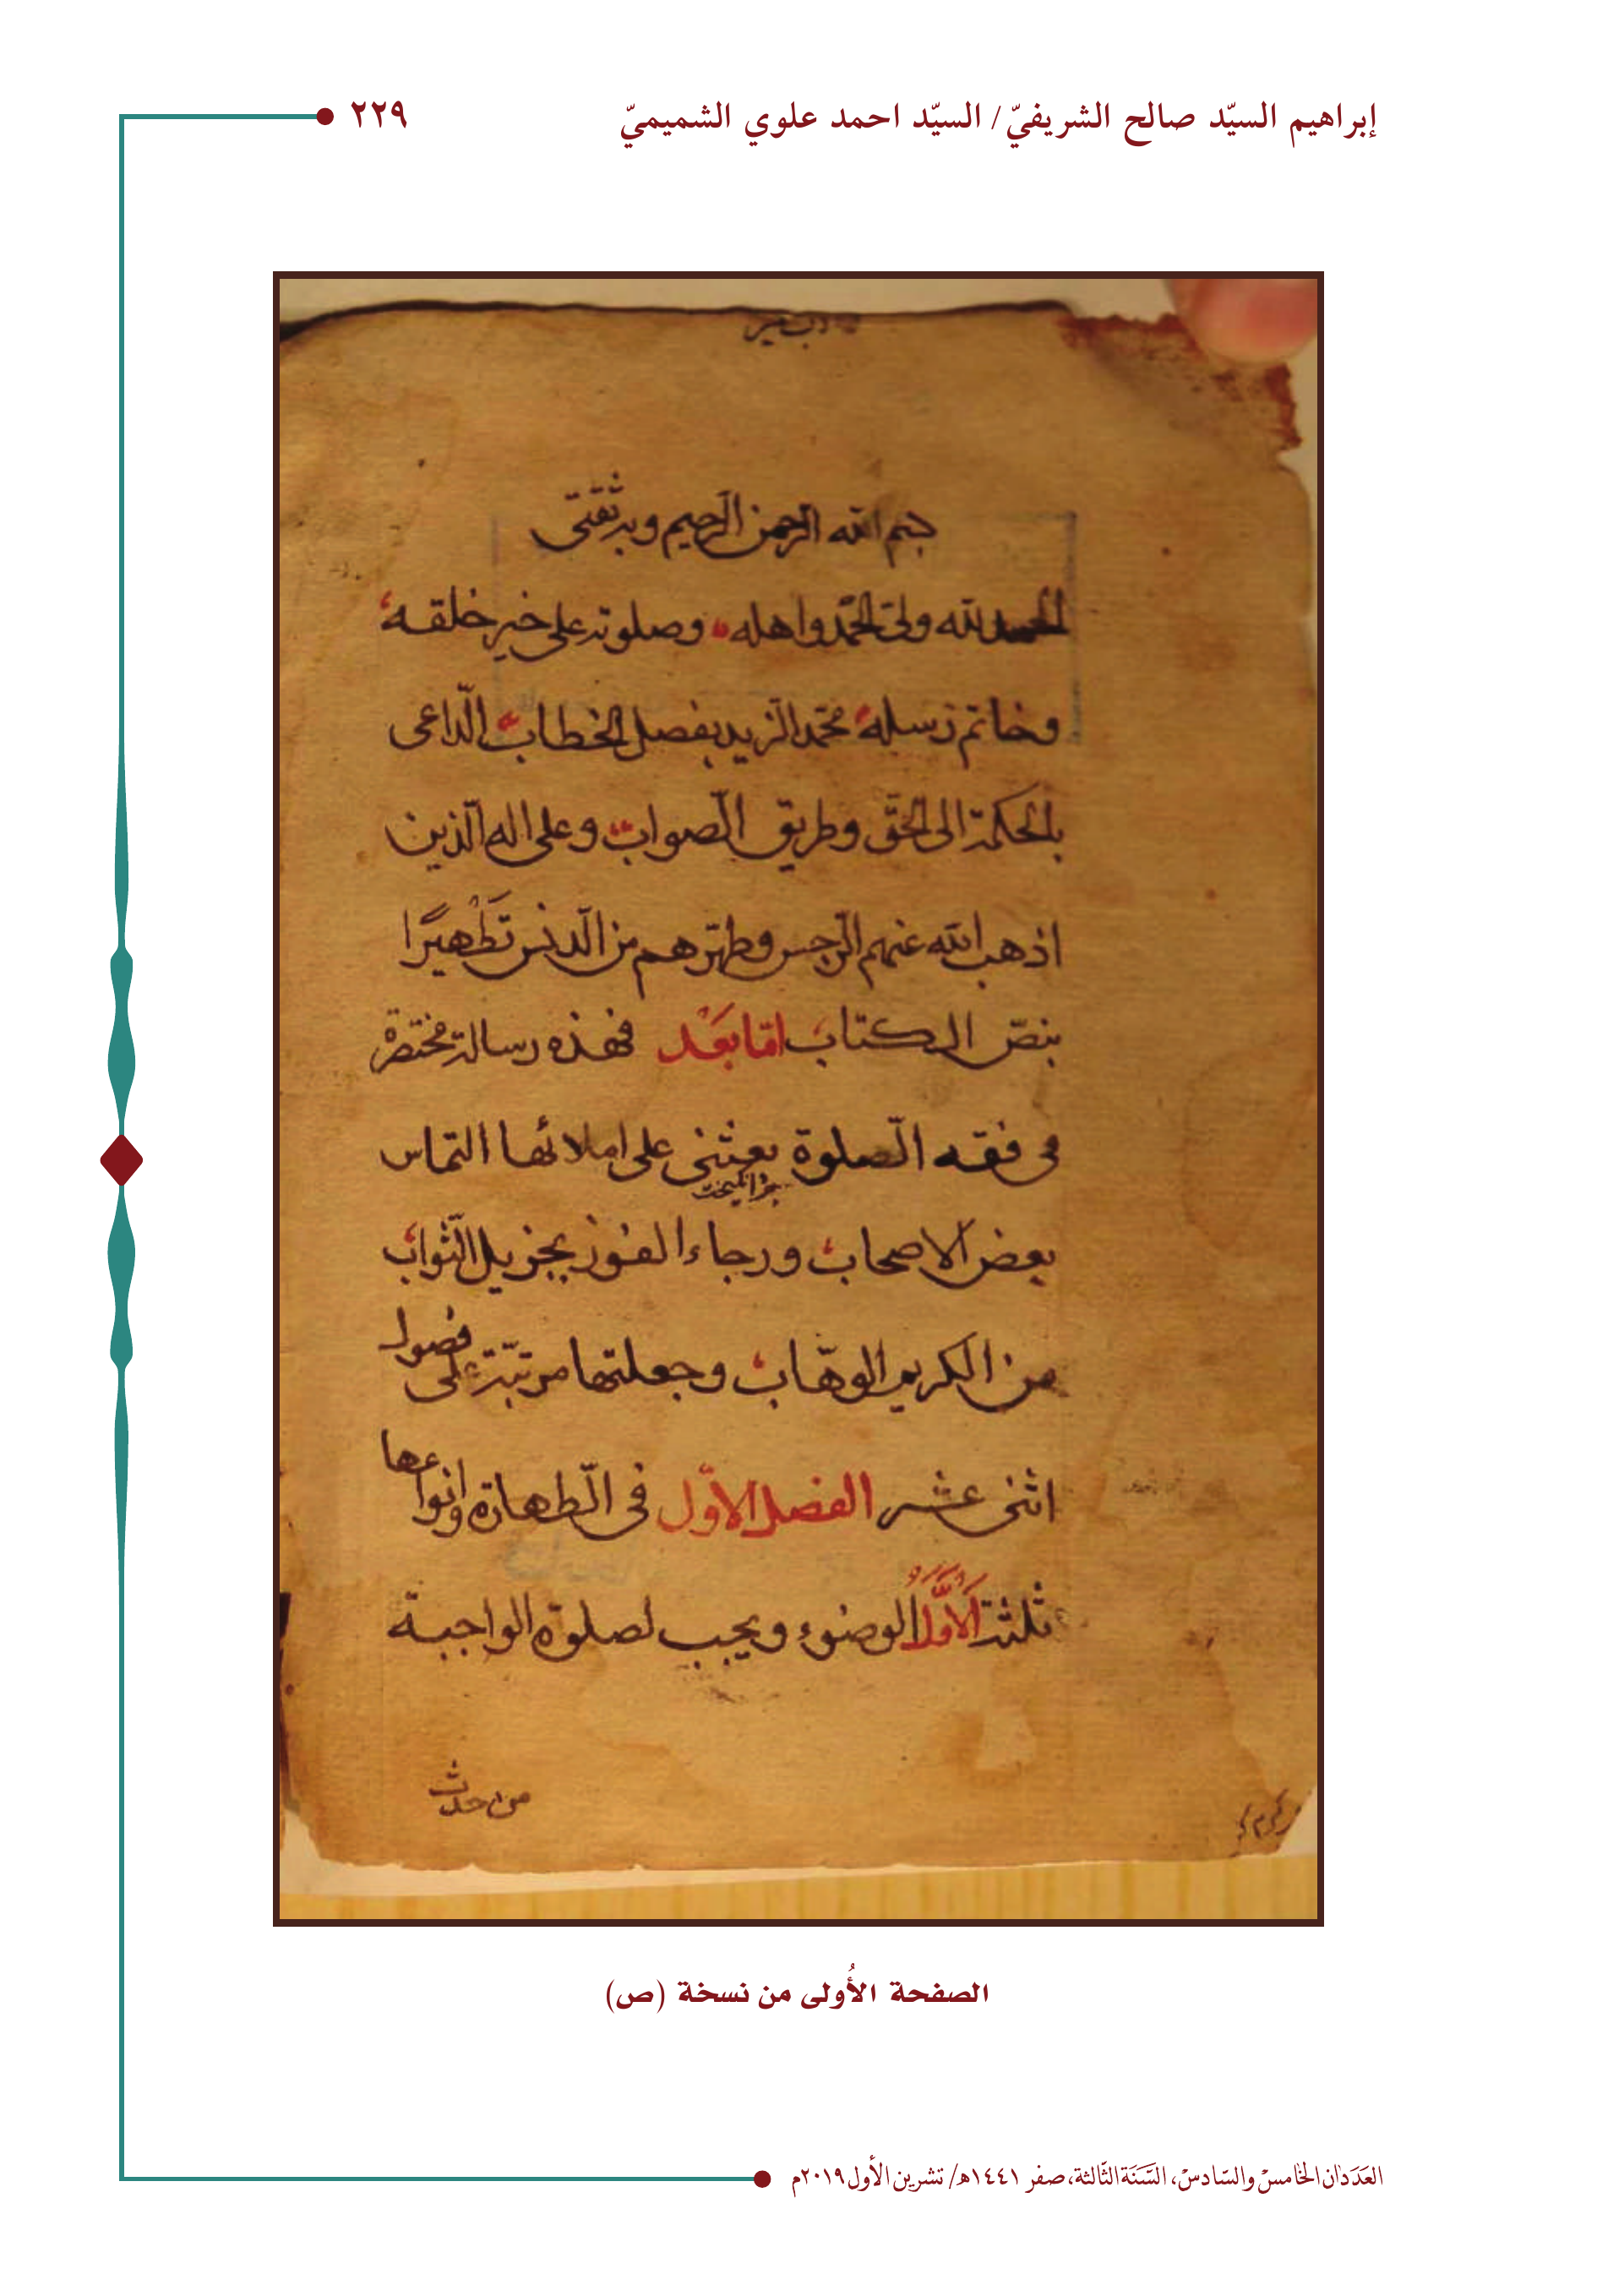 إبراهيم السيّد صالح الشريفيّ / السيّد احمد علوي الشميميّ ٢٢٩
بسم الله الرحمن الرحيم وبه ثقتى
الحمد لله ولىّ الحمد واهله وصلوته على خير خلقه
وخاتم رسله محمّد المزيد بفصل الخطاب الدّاعى
بالحكمة الى الحقّ وطريق الصّواب وعلى اله الّذين
اذهب الله عنهم الرّجس وطهّرهم من الدّنس تَطْهيرًا
بنصّ الكتاب امّا بَعْد فهذه رسالة مختصرة
فى فقه الصّلوة بعثنى على املائها التماس
بعض الاصحاب ورجاء الفوز بجزيل الثّواب
من الكريم الوهّاب وجعلتها مرتّبة على فصول
اثنى عشر الفصل الاوّل فى الطّهارة وانواعها
ثلثة الَاوَّلُ الوضوء ويجب لصلوة الواجبة
من احدث
الصفحة الأُولى من نسخة (ص)
العَدَدان الخامسْ والسّادسْ، السَّنَة الثّالثة، صفر ١٤٤١هـ/ تشرين الأول ٢٠١٩م